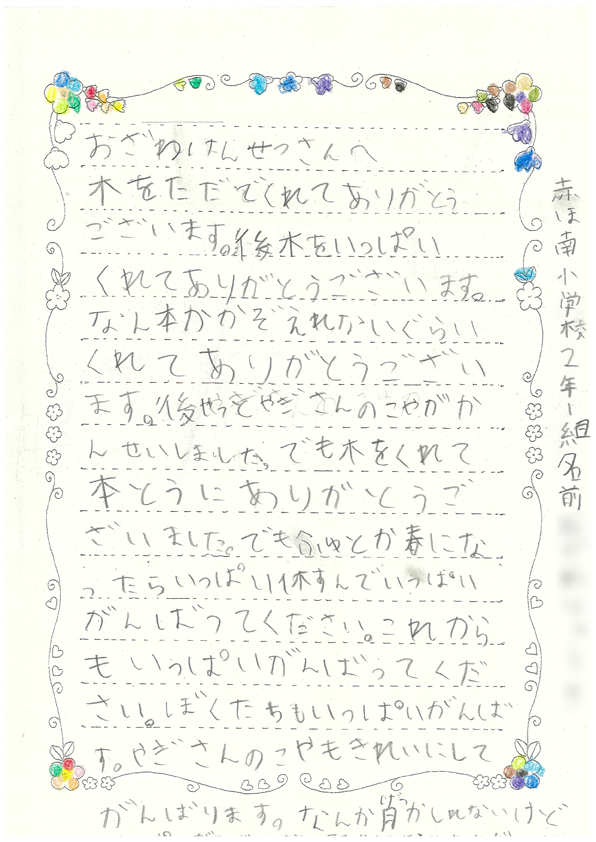 おざわけんせつさんへ
木をただでくれてありがとう
ございます。後木をいっぱい
くれてありがとうございます。
なん本かかぞえれないぐらい
くれてありがとうござい
ます。後やっとやぎさんのこやがか
んせいしました。でも木をくれて
本とうにありがとうご
ざいました。でもふゆとか春にな
ったらいっぱい休すんでいっぱい
がんばってください。これから
もいっぱいがんばってくだ
さい。ぼくたちもいっぱいがんば
す。やぎさんのこやもきれいにして
がんばります。なんか月かしれないけど
赤ほ南小学校2年1組名前